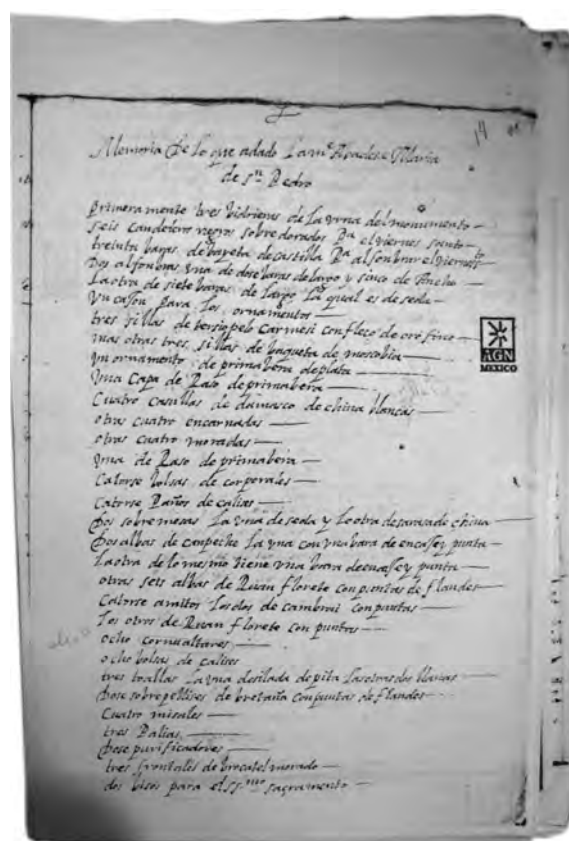 14
Memoria de lo que adado La me Abadesa Maria
de Sn Pedro
Primeramente tres bidrieras de La Vrna del monumento
seis candeleros negros sobre dorados Pa el viernes santo
treinta baras de bayeta de castilla Pa alfonbrar el viernes sto
Dos alfonbras Vna de dose baras de largo y sinco de Ancho
La otra de siete baras de largo La qual es de seda
Vn cajon para Los ornamentos
tres sillas de tersiopelo carmesi con fleco de oro fino
mas otras tres sillas de baqueta de moscobia
Vn ornamento de primabera de plata
Vna Capa de Raso de primabera
Cuatro casullas de damasco de china blancas
otras cuatro encarnadas
otras cuatro moradas
Vna de Raso de primabera
Catorse bolsas de corporales
Catorse Paños de calises
Dos sobremesas La Vna de seda y La otra de sarasa de china
Dos albas de canpeche La Vna con Vna bara de encaje y punta
La otra de lo mesmo tiene Vna bara de encaje y punta
otras seis albas de Ruan florete con puntas de flandes
Catorse amitos Los dos de cambrai con puntas
Los otros de Ruan florete con puntas
ocho cornualtares
ocho bolsas de calises
tres toallas La Vna desilada de pita Las otras dos blancas
Dose sobrepellises de bretaña con puntas de flandes
Cuatro misales
tres Palias
Dose purificadores
tres frontales de brocatel morado
dos bisos para el SSmo sacramento
AGN
MEXICO